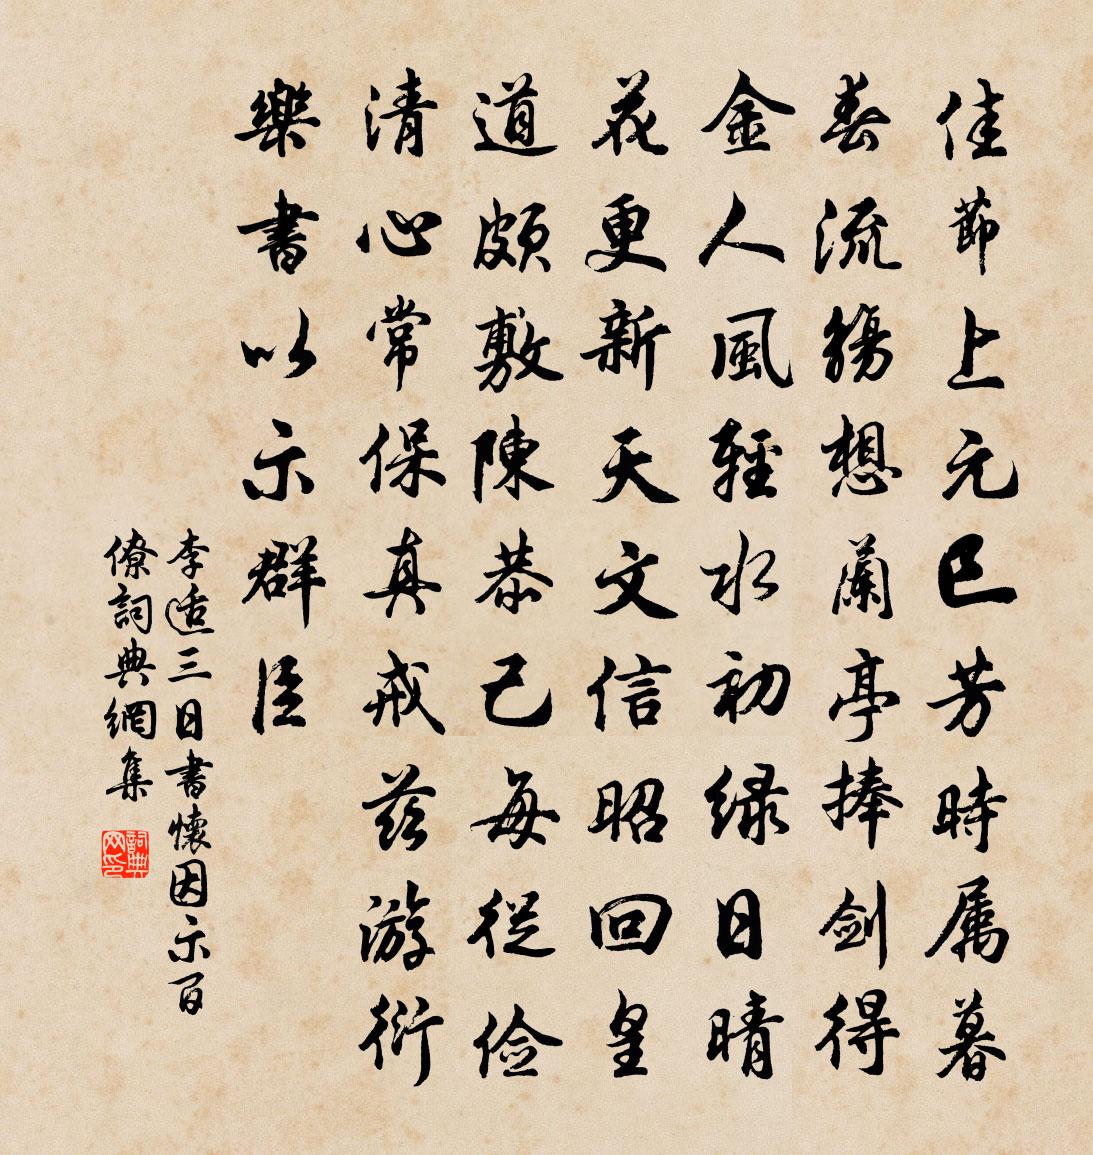 佳節上元巳芳時属暮
春流觴想蘭亭捧剑得
金人風輕水初绿日晴
花更新天文信昭回皇
道頗敷陳恭己每從儉
清心常保真戒兹游衍
樂書以示群臣
李适三日書懷因示百
僚詞典網集
詞典网印